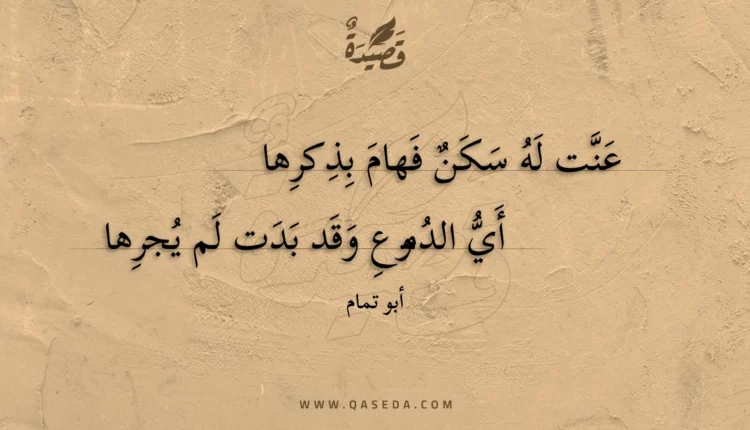 قَصِيدَةٌ
عَنَّت لَهُ سَكَنٌ فَهامَ بِذِكرِها
أَيُّ الدُموعِ وَقَد بَدَت لَم يُجرِها
أبو تمام
WWW.QASEDA.COM